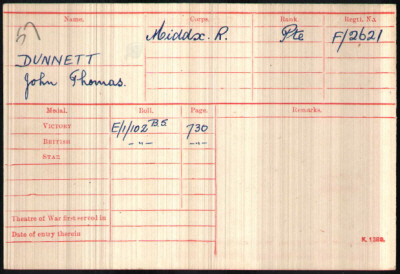 Name. Corps. Rank Regtl. No.
Middx. R. Pte F/2621
DUNNETT
John Thomas.
Medal. Roll. Page. Remarks.
VICTORY E/1/102 B5 730
BRITISH -"- -"-
STAR
Theatre of War first served in
Date of entry therein
K. 1380.